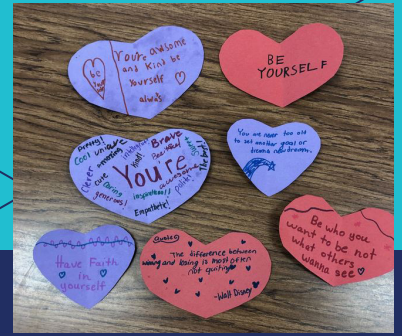 You're awsome
and kind be
yourself
always
be
BE
YOURSELF
Pretty!
Cool
unique
amazing
Kind!
Brave
Beautiful
Clever
cute
Caring
generous!
You're
awesome
polite
inspirational!
Empathetic!
You are never too old
to set another goal or
dream a new dream.
Have Faith
in
yourself
Quotes
The difference between
winning and losing is most often
not quiting
-Walt Disney
Be who you
want to be not
what others
wanna see